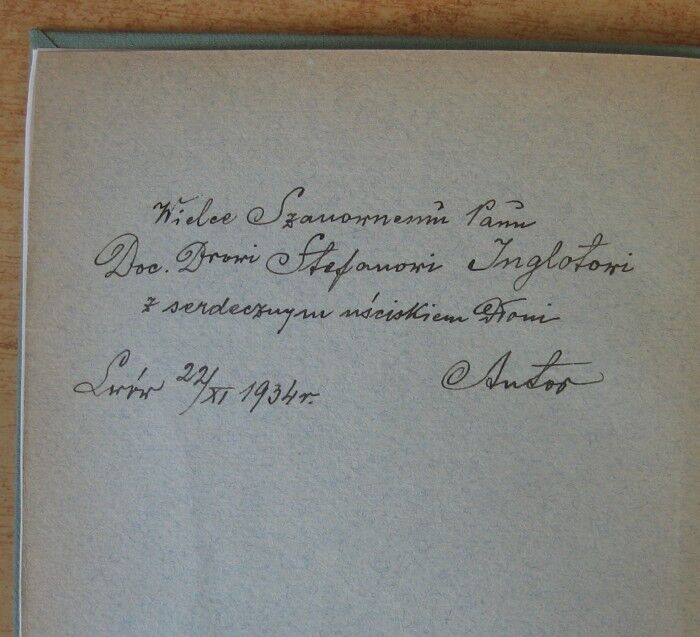 Wielce Szanownemu Panu
Doc. Drowi Stefanowi Inglotowi
z serdecznym uściskiem Dłoni
Lwów 22/XI 1934 r. Autor